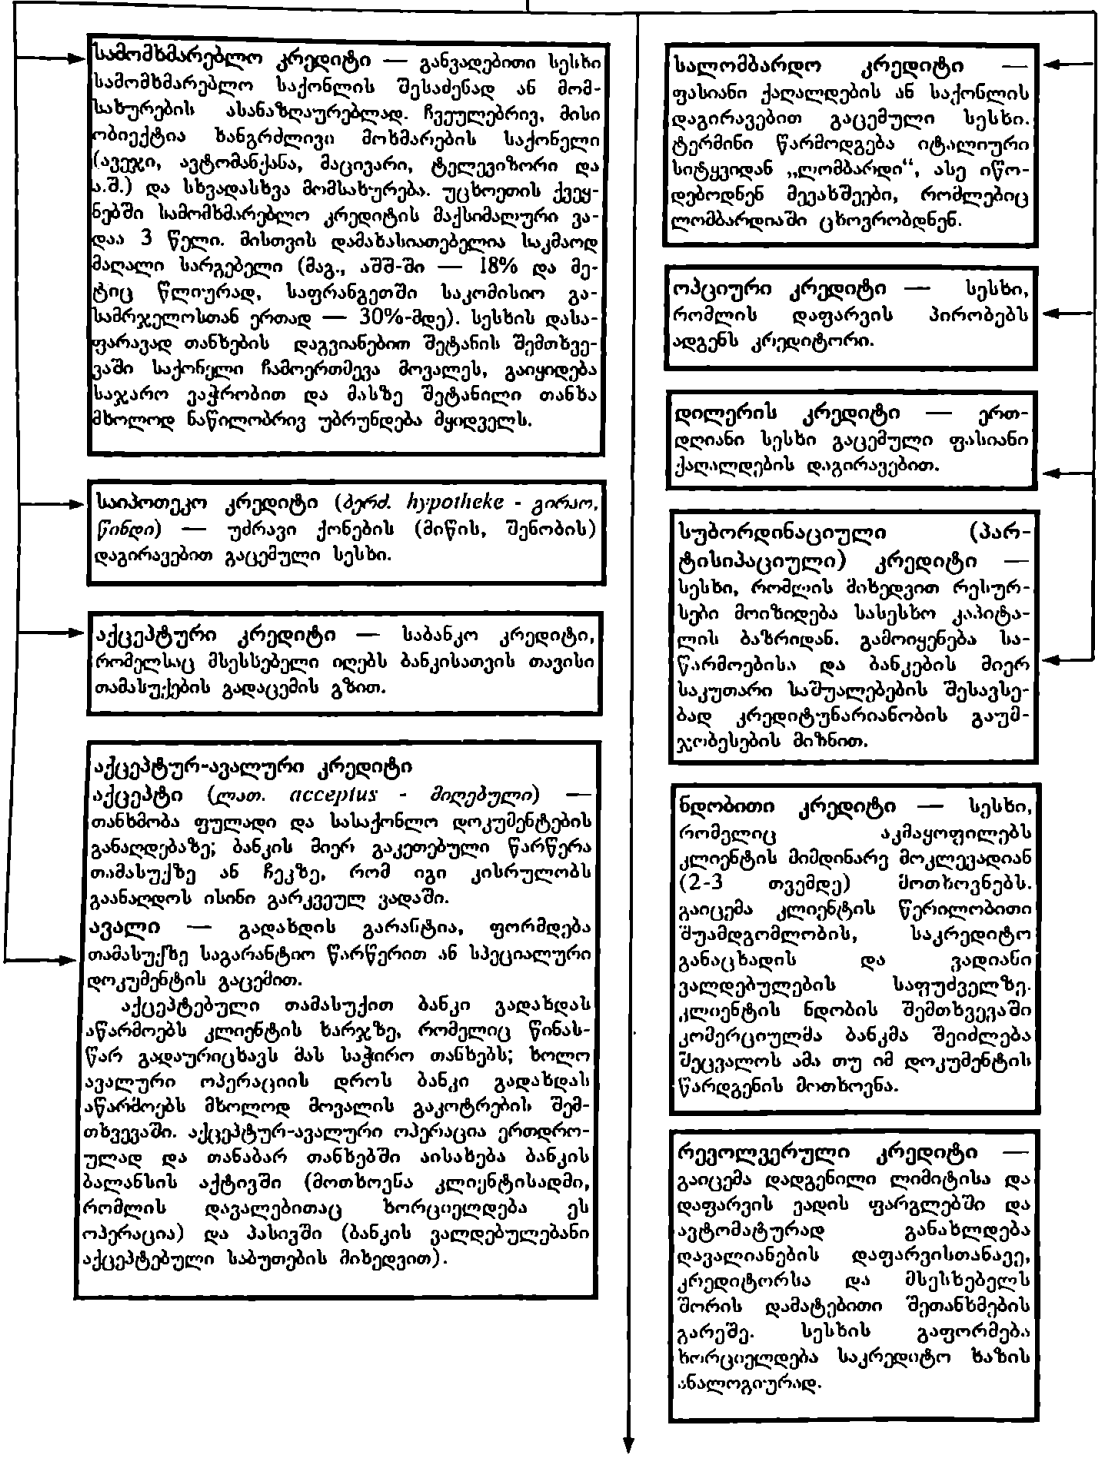 სამომხმარებლო კრედიტი — განვადებითი სესხი
სამომხმარებლო საქონლის შესაძენად ან მომ-
სახურების ასანაზღაურებლად. ჩვეულებრივ, მისი
ობიექტია ხანგრძლივი მოხმარების საქონელი
(ავეჯი, ავტომანქანა, მაცივარი, ტელევიზორი და
ა.შ.) და სხვადასხვა მომსახურება. უცხოეთის ქვეყ-
ნებში სამომხმარებლო კრედიტის მაქსიმალური ვა-
დაა 3 წელი. მისთვის დამახასიათებელია საკმაოდ
მაღალი სარგებელი (მაგ., აშშ-ში — 18% და მე-
ტიც წლიურად, საფრანგეთში საკომისიო გა-
სამრჯელოსთან ერთად — 30%-მდე). სესხის დასა-
ფარავად თანხების დაგვიანებით შეტანის შემთხვე-
ვაში საქონელი ჩამოერთმევა მოვალეს, გაიყიდება
საჯარო ვაჭრობით და მასზე შეტანილი თანხა
მხოლოდ ნაწილობრივ უბრუნდება მყიდველს.
საიპოთეკო კრედიტი (ბერძ. hypotheke - გირაო,
წინდი) — უძრავი ქონების (მიწის, შენობის)
დაგირავებით გაცემული სესხი.
აქცეპტური კრედიტი — საბანკო კრედიტი,
რომელსაც მსესხებელი იღებს ბანკისათვის თავისი
თამასუქების გადაცემის გზით.
აქცეპტურ-ავალური კრედიტი
აქცეპტი (ლათ. acceptus - მიღებული) —
თანხმობა ფულადი და სასაქონლო დოკუმენტების
განაღდებაზე; ბანკის მიერ გაკეთებული წარწერა
თამასუქზე ან ჩეკზე, რომ იგი კისრულობს
გაანაღდოს ისინი გარკვეულ ვადაში.
ავალი — გადახდის გარანტია, ფორმდება
თამასუქზე საგარანტიო წარწერით ან სპეციალური
დოკუმენტის გაცემით.
აქცეპტებული თამასუქით ბანკი გადახდას
აწარმოებს კლიენტის ხარჯზე, რომელიც წინას-
წარ გადაურიცხავს მას საჭირო თანხებს; ხოლო
ავალური ოპერაციის დროს ბანკი გადახდას
აწარმოებს მხოლოდ მოვალის გაკოტრების შემ-
თხვევაში. აქცეპტურ-ავალური ოპერაცია ერთდრო-
ულად და თანაბარ თანხებში აისახება ბანკის
ბალანსის აქტივში (მოთხოვნა კლიენტისადმი,
რომლის დავალებითაც ხორციელდება ეს
ოპერაცია) და პასივში (ბანკის ვალდებულებანი
აქცეპტებული საბუთების მიხედვით).
სალომბარდო კრედიტი —
ფასიანი ქაღალდების ან საქონლის
დაგირავებით გაცემული სესხი.
ტერმინი წარმოდგება იტალიური
სიტყვიდან „ლომბარდი“, ასე იწო-
დებოდნენ მევახშეები, რომლებიც
ლომბარდიაში ცხოვრობდნენ.
ოპციური კრედიტი — სესხი,
რომლის დაფარვის პირობებს
ადგენს კრედიტორი.
დილერის კრედიტი — ერთ-
დღიანი სესხი გაცემული ფასიანი
ქაღალდების დაგირავებით.
სუბორდინაციული (პარ-
ტისიპაციული) კრედიტი —
სესხი, რომლის მიხედვით რესურ-
სები მოიზიდება სასესხო კაპიტა-
ლის ბაზრიდან. გამოიყენება სა-
წარმოებისა და ბანკების მიერ
საკუთარი საშუალებების შესავსე-
ბად კრედიტუნარიანობის გაუმ-
ჯობესების მიზნით.
ნდობითი კრედიტი — სესხი,
რომელიც აკმაყოფილებს
კლიენტის მიმდინარე მოკლევადიან
(2-3 თვემდე) მოთხოვნებს.
გაიცემა კლიენტის წერილობითი
შუამდგომლობის, საკრედიტო
განაცხადის და ვადიანი
ვალდებულების საფუძველზე.
კლიენტის ნდობის შემთხვევაში
კომერციულმა ბანკმა შეიძლება
შეცვალოს ამა თუ იმ დოკუმენტის
წარდგენის მოთხოვნა.
რევოლვერული კრედიტი —
გაიცემა დადგენილი ლიმიტისა და
დაფარვის ვადის ფარგლებში და
ავტომატურად განახლდება
დავალიანების დაფარვისთანავე,
კრედიტორსა და მსესხებელს
შორის დამატებითი შეთანხმების
გარეშე. სესხის გაფორმება
ხორციელდება საკრედიტო ხაზის
ანალოგიურად.